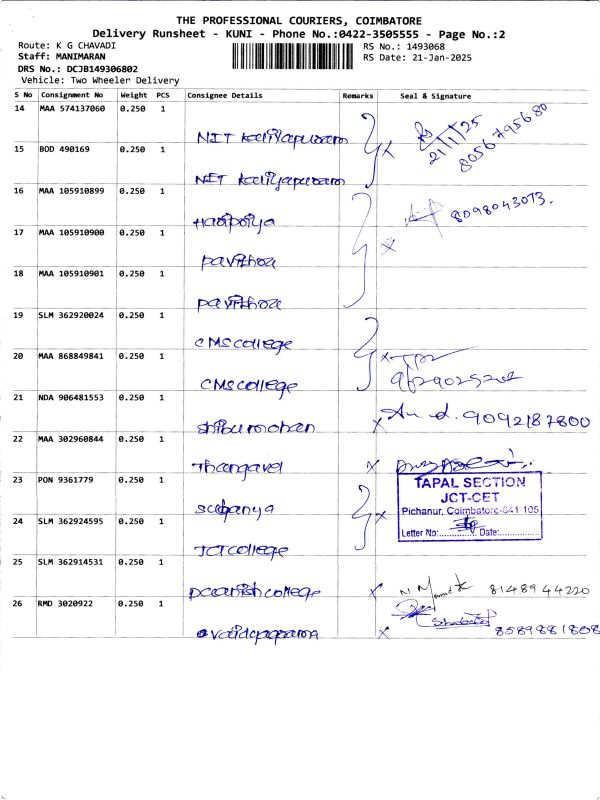 THE PROFESSIONAL COURIERS, COIMBATORE
Delivery Runsheet - KUNI - Phone No.:0422-3505555 - Page No.:2
Route: K G CHAVADI RS No.: 1493068
Staff: MANIMARAN RS Date: 21-Jan-2025
DRS No.: DCJB149306802
Vehicle: Two Wheeler Delivery
S No Consignment No Weight PCS Consignee Details Remarks Seal & Signature
14 MAA 574137060 0.250 1
NIT Kaliyapuram
21/1/25
8056795680
15 BOD 490169 0.250 1
NIT Kaliyapuram
16 MAA 105910899 0.250 1
Haripriya
8098043073.
17 MAA 105910900 0.250 1
pavithra
18 MAA 105910901 0.250 1
pavithra
19 SLM 362920024 0.250 1
CMS college
20 MAA 868849841 0.250 1
CMS college
21 NDA 906481553 0.250 1
shibu mohan
9092187800
22 MAA 302960844 0.250 1
Thangavel
23 PON 9361779 0.250 1
sukanya
TAPAL SECTION
JCT-CET
Pichanur, Coimbatore-641 105
Letter No: Date:
24 SLM 362924595 0.250 1
JCT college
25 SLM 362914531 0.250 1
college
8148944220
26 RMD 3020922 0.250 1
8589881808